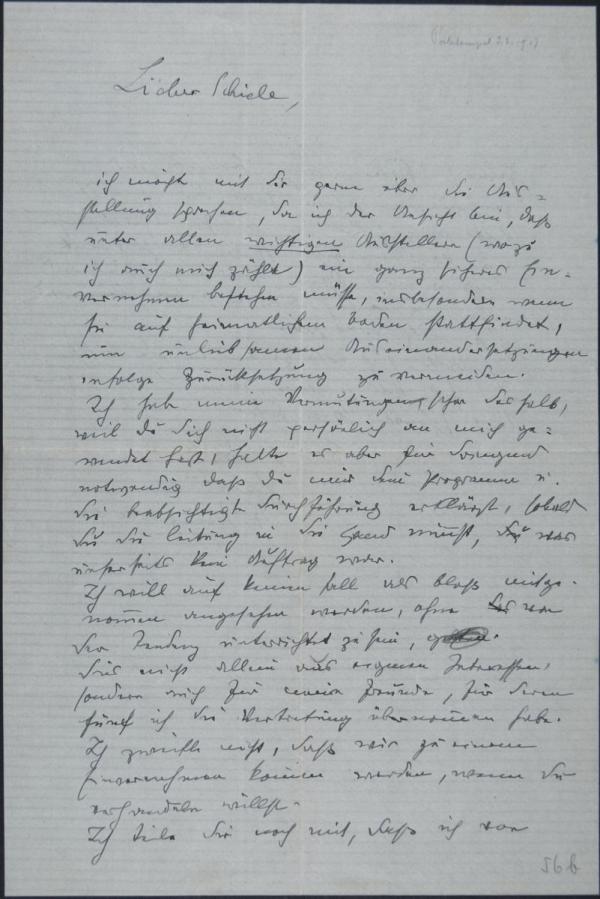 Poststempel 2.3.1917
Lieber Schiele,
ich möchte mit Dir gerne über die Aus=
stellung sprechen, da ich der Ansicht bin, daß
unter allen wichtigen Ausstellern (wozu
ich auch mich zähle) ein ganz sicheres Ein=
vernehmen bestehen müsse, insbesondere wenn
sie auf heimatlichen Boden stattfindet,
um unliebsamen Auseinandersetzungen
infolge Zurücksetzung zu vermeiden.
Ich habe meine Vermutungen, schon deshalb,
weil Du Dich nicht persönlich an mich ge=
wendet hast, halte es aber für dringend
notwendig daß Du mir Dein Programm u.
die beabsichtigte Durchführung erklärst, sobald
Du die Leitung in die Hand nimmst, was
unserseits kein Auftrag war.
Ich will auf keinen Fall als bloß mitge=
nommen angesehen werden, ohne von
der Tendenz unterrichtet zu sein,
Dies nicht allein aus eigenen Interessen,
sondern auch für meine Freunde, für deren
fünf ich die Vertretung übernommen habe.
Ich zweifle nicht, daß wir zu einem
Einvernehmen kommen werden, wenn Du
verhandeln willst.
Ich teile Dir noch mit, daß ich von
56b